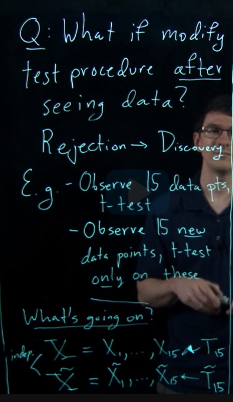 Q: What if modify
test procedure after
seeing data?
Rejection → Discovery
E.g. - Observe 15 data pts,
t-test
- Observe 15 new
data points, t-test
only on these
What's going on?
indep. X = X₁, ..., X₁₅ ← T₁₅
X̃ = X̃₁, ..., X̃₁₅ ← T̃₁₅